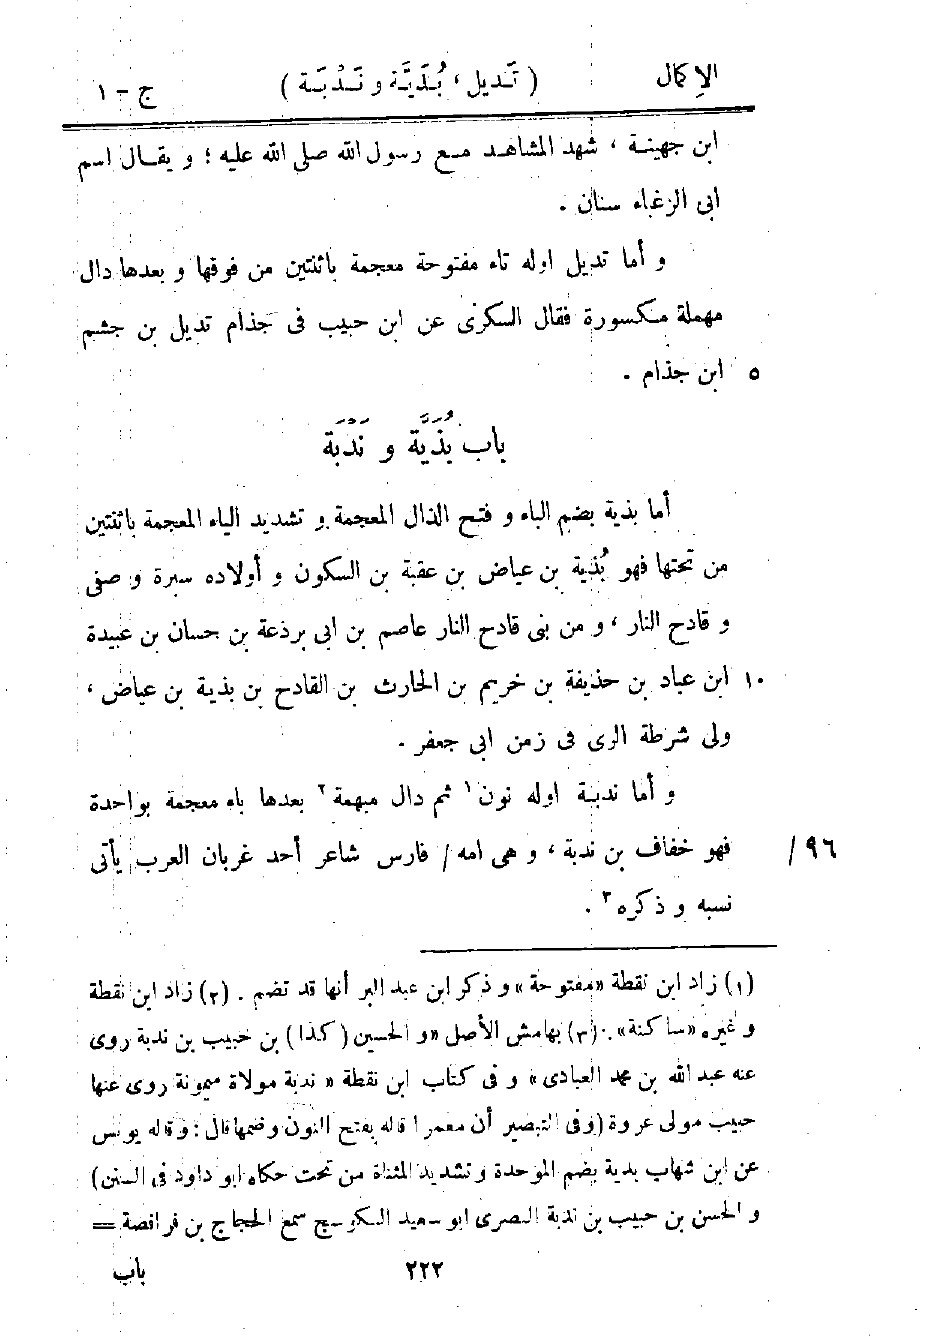 الإكمال ( تَديل ، بُذَيَّة و نَدْبَة ) ج - ١
ابن جهينة ، شهد المشاهد مع رسول الله صلى الله عليه ؛ و يقال اسم
ابى الزغباء سنان .
و أما تديل اوله تاء مفتوحة معجمة باثنتين من فوقها و بعدها دال
مهملة مكسورة فقال السكرى عن ابن حبيب فى جذام تديل بن جشم
٥ ابن جذام .
باب بُذَيَّة و نَدْبَة
أما بذية بضم الباء و فتح الذال المعجمة و تشديد الياء المعجمة باثنتين
من تحتها فهو بُذية بن عياض بن عقبة بن السكون و أولاده سبرة و صفى
و قادح النار ، و من بنى قادح النار عاصم بن ابى برذعة بن حسان بن عبيدة
١٠ ابن عباد بن حذيفة بن خريم بن الحارث بن القادح بن بذية بن عياض ،
ولى شرطة الرى فى زمن ابى جعفر .
و أما ندبة اوله نون١ ثم دال مبهمة٢ بعدها باء معجمة بواحدة
٩٦/ فهو خفاف بن ندبة ، و هى امه / فارس شاعر أحد غربان العرب يأتى
نسبه و ذكره٣ .
(١) زاد ابن نقطة «مفتوحة» و ذكر ابن عبد البر أنها قد تضم . (٢) زاد ابن نقطة
و غيره «ساكنة». (٣) بهامش الأصل «و الحسين (كذا) بن حبيب بن ندبة روى
عنه عبد الله بن محمد العبادى» و فى كتاب ابن نقطة « ندبة مولاة ميمونة روى عنها
حبيب مولى عروة (وفى التبصير أن معمرا قاله بفتح النون وضمها قال : وقاله يونس
عن ابن شهاب بدية بضم الموحدة و تشديد المثناة من تحت حكاه ابو داود فى السنن)
و الحسن بن حبيب بن ندبة البصرى ابو سعيد الكوسج سمع الحجاج بن فرافصة =
٢٢٢ باب